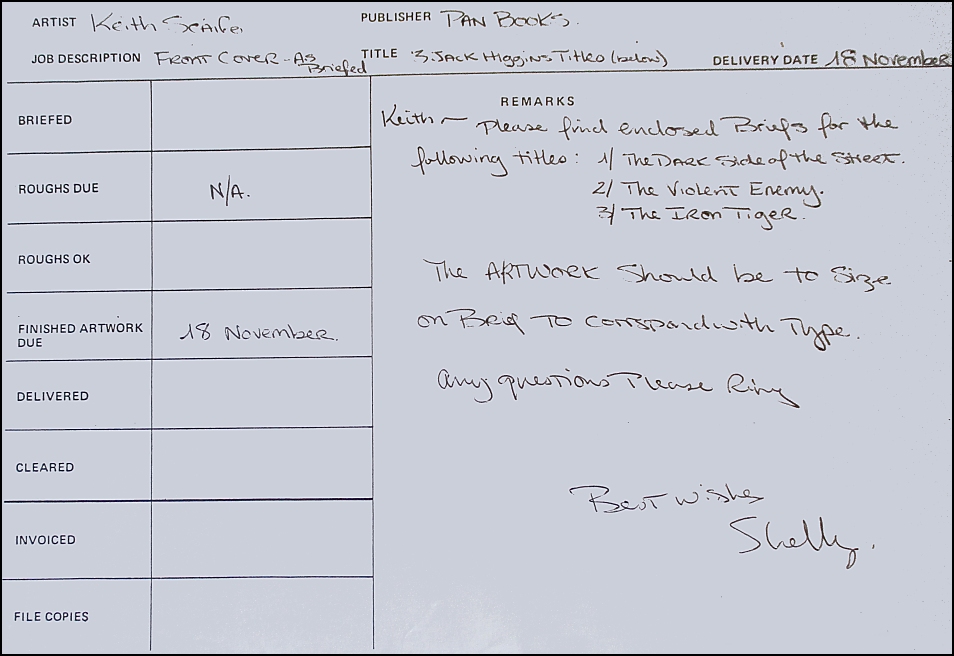 ARTIST Keith Scaife. PUBLISHER PAN BOOKS.
JOB DESCRIPTION FRONT COVER - AS Briefed TITLE 3 JACK HIGGINS TITLES (below) DELIVERY DATE 18 November
REMARKS
BRIEFED
Keith — Please find enclosed Briefs for the
following titles: 1/ The DARK Side of the Street.
ROUGHS DUE N/A. 2/ The Violent Enemy.
3/ The IRON TIGER.
ROUGHS OK
The ARTWORK should be to size
FINISHED ARTWORK DUE 18 November.
on Brief to correspond with Type.
DELIVERED
Any questions Please Ring
CLEARED
Best wishes
INVOICED
Shelly.
FILE COPIES